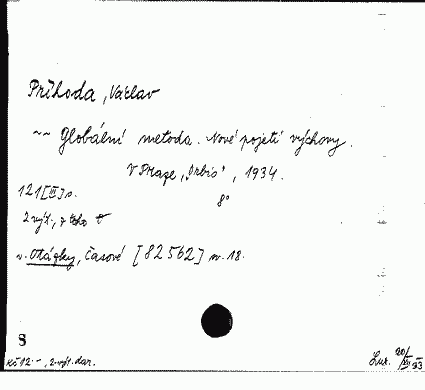 Příhoda, Václav
~~ Globální metoda. Nové pojetí výchovy.
V Praze, „Orbis", 1934.
121 [III] s.
8°
2 výt., z toho
v. Otázky, Časové [82562] sv. 18.
S
Kč 12.-, 2 výt. dar.